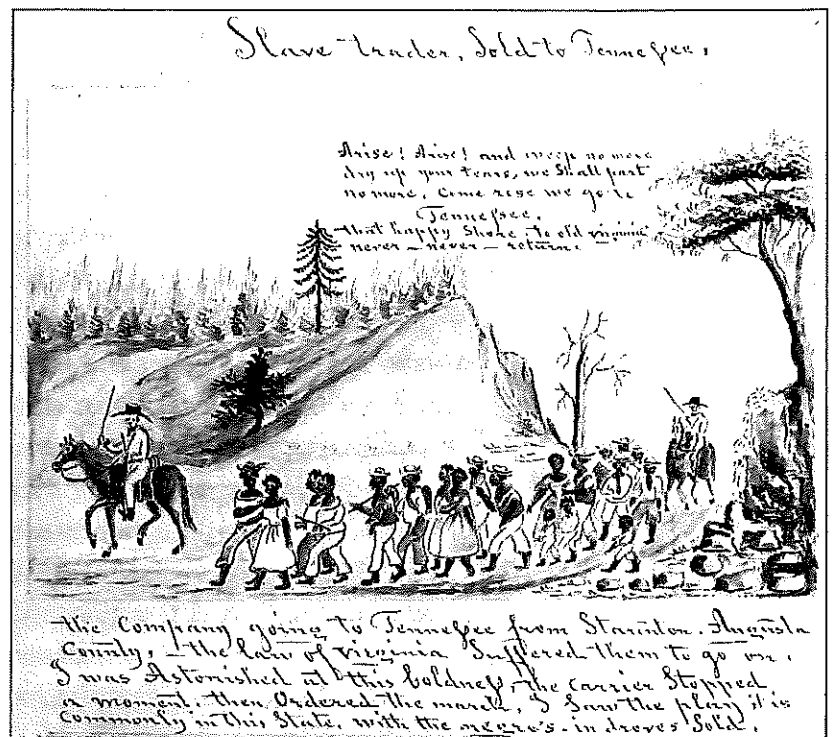 Slave trader, Sold to Tennessee,
Arise! Arise! and weep no more
dry up your tears, we Shall part
no more, Come rise we go to
Tennessee,
that happy Shore, to old virginia
never - never - return.
the Company going to Tennessee from Staunton, Augusta
County, - the law of virginia Suffered them to go on.
I was Astonished at this boldness, the carrier Stopped
a moment, then Ordered the march, I Saw the play it is
Commonly in this State, with the negro's in droves Sold.